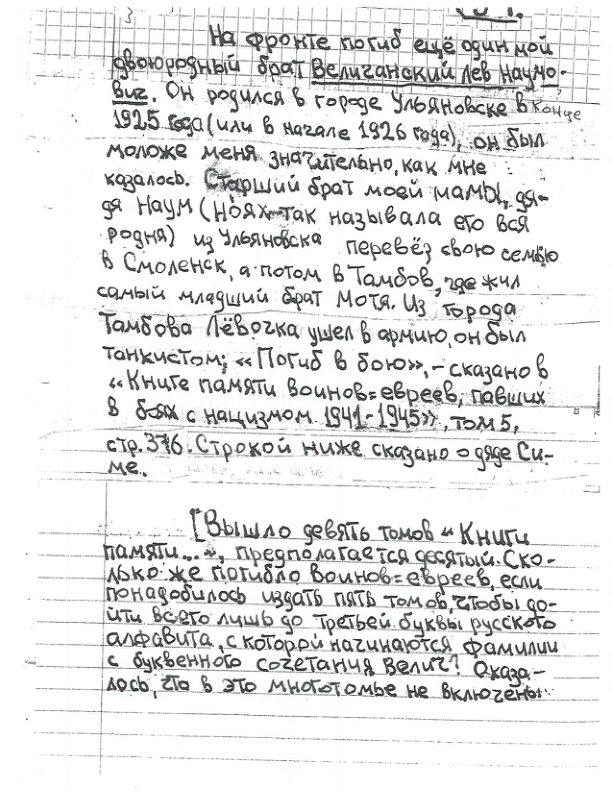 На фронте погиб ещё один мой
двоюродный брат Величанский Лев Наумо-
вич. Он родился в городе Ульяновске в конце
1925 года (или в начале 1926 года), он был
моложе меня значительно, как мне
казалось. Старший брат моей мамы, дя-
дя Наум (Ноях- так называла его вся
родня) из Ульяновска перевёз свою семью
в Смоленск, а потом в Тамбов, где жил
самый младший брат Мотя. Из города
Тамбова Лёвочка ушел в армию, он был
танкистом; «Погиб в бою», - сказано в
«Книге памяти воинов=евреев, павших
в боях с нацизмом 1941-1945», том 5,
стр. 376. Строкой ниже сказано о дяде Си-
ме.
[Вышло девять томов «Книги
памяти...», предполагается десятый. Ско-
лько же погибло воинов=евреев, если
понадобилось издать пять томов, чтобы до-
йти всего лишь до третьей буквы русского
алфавита, с которой начинаются фамилии
с буквенного сочетания Велич? Оказа-
лось, что в это многотомье не включены